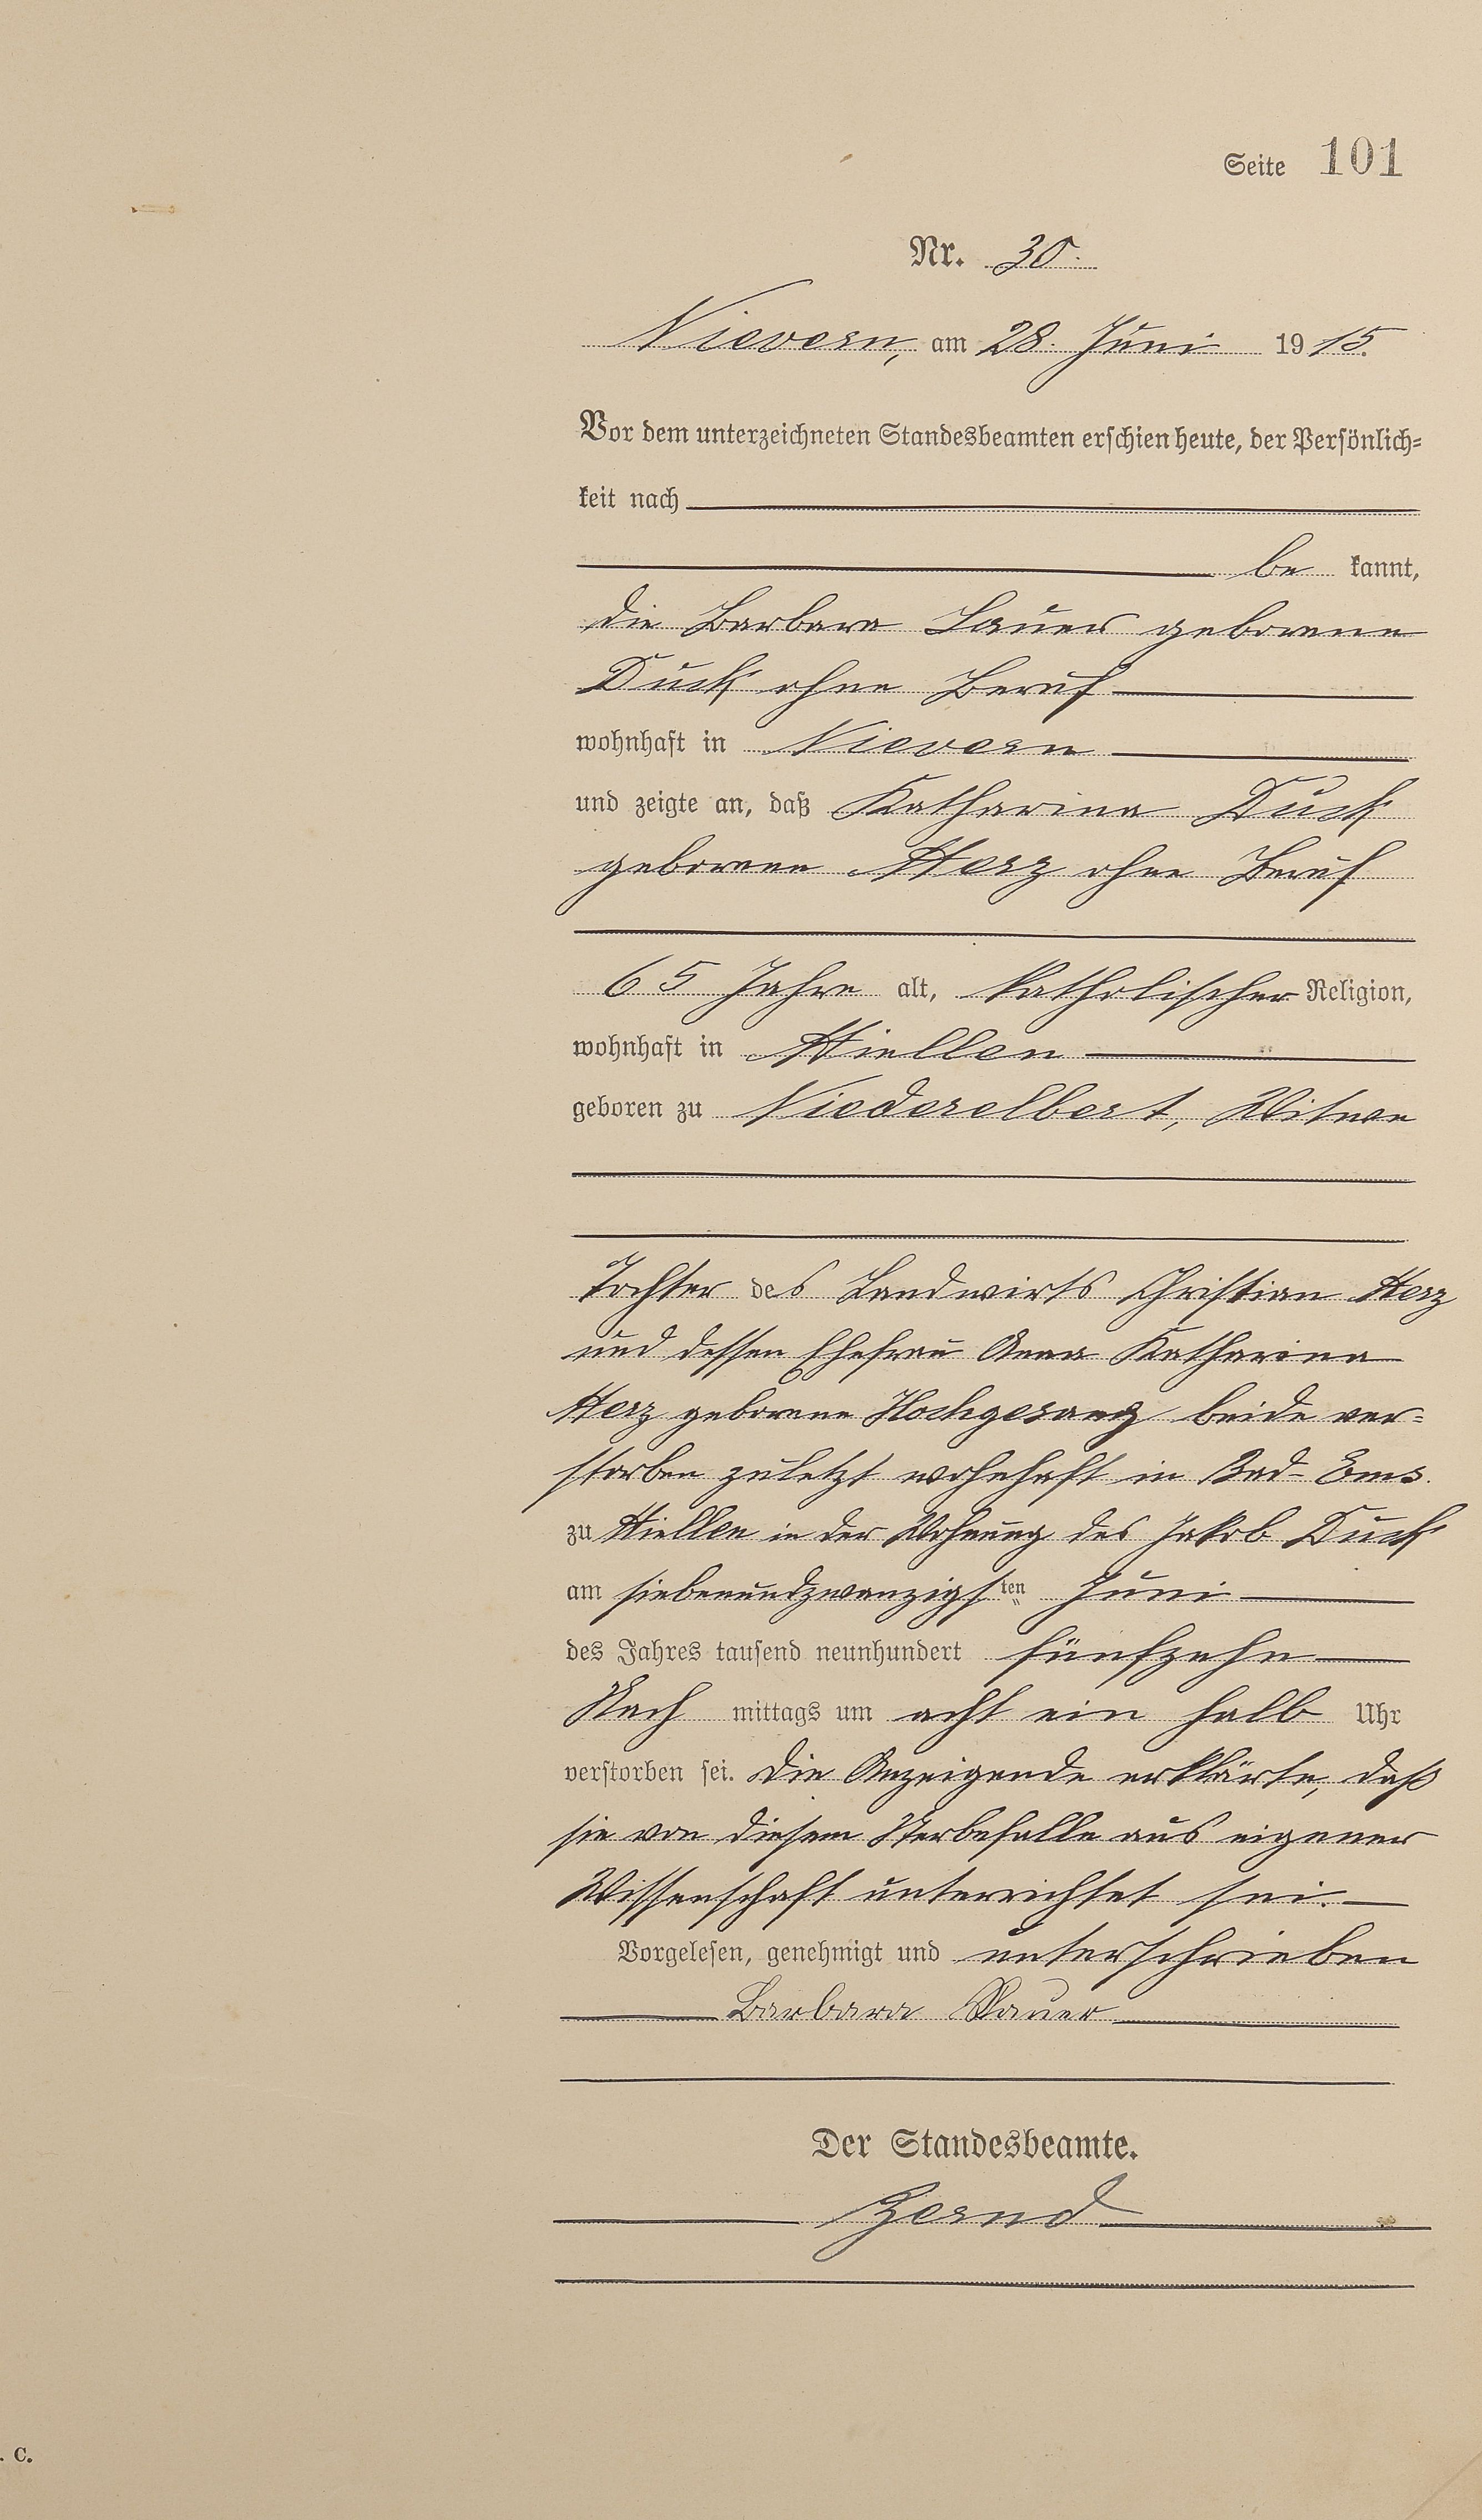 Seite 101
Nr. 30.
Nievern, am 28. Juni 1915.
Vor dem unterzeichneten Standesbeamten erschien heute, der Persönlich=
keit nach
be kannt,
die Barbara Lauer geborene
Duck ohne Beruf
wohnhaft in Nievern
und zeigte an, daß Katharina Duck
geborene Herz ohne Beruf
65 Jahre alt, katholischer Religion,
wohnhaft in Miellen
geboren zu Niederelbert, Witwe
Tochter des Landwirts Christian Herz
und dessen Ehefrau Anna Katharina
Herz geborene Hochgesang beide ver=
storben zuletzt wohnhaft in Bad-Ems.
zu Miellen in der Wohnung des Jakob Duck
am siebenundzwanzigsten Juni
des Jahres tausend neunhundert fünfzehn
Nach mittags um acht ein halb Uhr
verstorben sei. Die Anzeigende erklärte, daß
sie von diesem Sterbefalle aus eigener
Wissenschaft unterrichtet sei.
Vorgelesen, genehmigt und unterschrieben
Barbara Lauer
Der Standesbeamte.
. C.